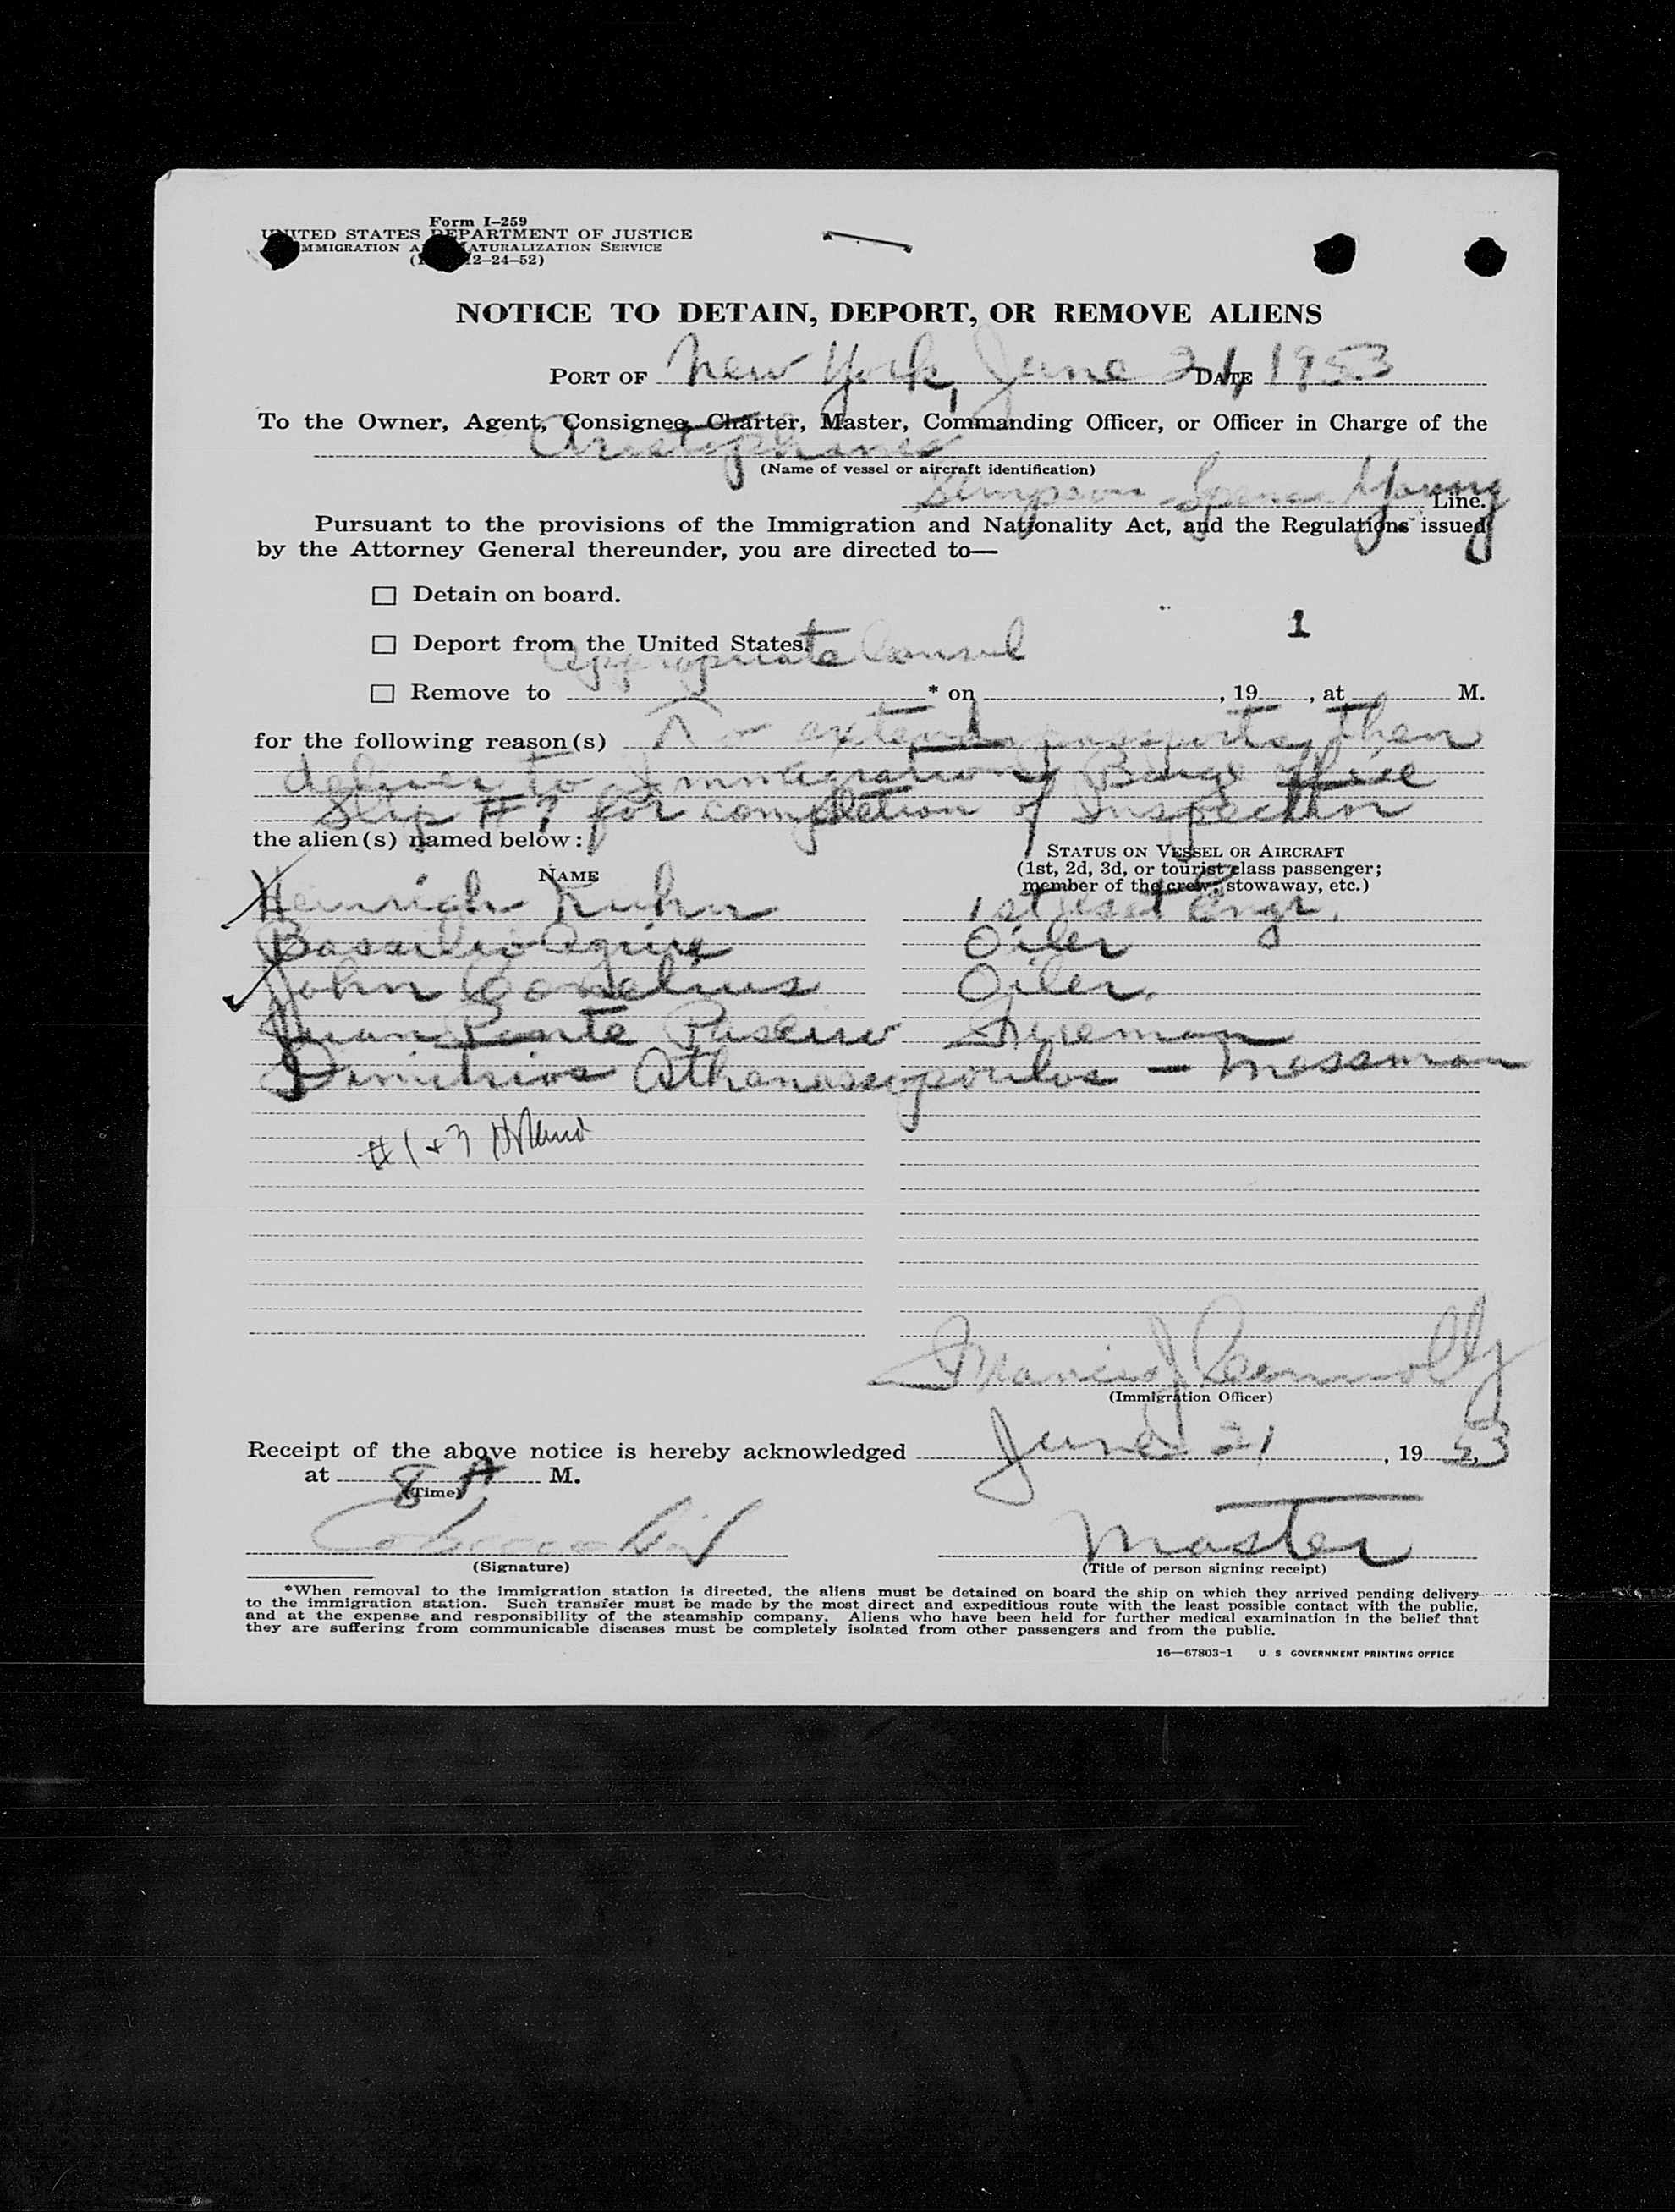 Form I-259
UNITED STATES DEPARTMENT OF JUSTICE
IMMIGRATION AND NATURALIZATION SERVICE
12-24-52)
NOTICE TO DETAIN, DEPORT, OR REMOVE ALIENS
PORT OF New York, June 21, DATE 1953
To the Owner, Agent, Consignee, Charter, Master, Commanding Officer, or Officer in Charge of the
Aristophanes
(Name of vessel or aircraft identification)
Simpson Spence Young Line.
Pursuant to the provisions of the Immigration and Nationality Act, and the Regulations issued
by the Attorney General thereunder, you are directed to—
☐ Detain on board.
1
☐ Deport from the United States.
appropriate Consul
☐ Remove to * on , 19 , at M.
for the following reason(s) To extend passports, then
deliver to Immigration Barge Office
Slip #7 for completion of Inspection
the alien(s) named below:
STATUS ON VESSEL OR AIRCRAFT
(1st, 2d, 3d, or tourist class passenger;
member of the crew, stowaway, etc.)
NAME
Heinrich Kuhn 1st Asst Engr.
Bassilio Oiler
John Cornelius Oiler.
Juan Ponte Fireman
Dimitrios Athanasopoulos — Messman
#1 + 3
Francis J Connolly
(Immigration Officer)
Receipt of the above notice is hereby acknowledged June 21, 1953
at 8 A M.
(Time)
Master
(Signature)
(Title of person signing receipt)
*When removal to the immigration station is directed, the aliens must be detained on board the ship on which they arrived pending delivery
to the immigration station. Such transfer must be made by the most direct and expeditious route with the least possible contact with the public,
and at the expense and responsibility of the steamship company. Aliens who have been held for further medical examination in the belief that
they are suffering from communicable diseases must be completely isolated from other passengers and from the public.
16—67803-1 U. S. GOVERNMENT PRINTING OFFICE